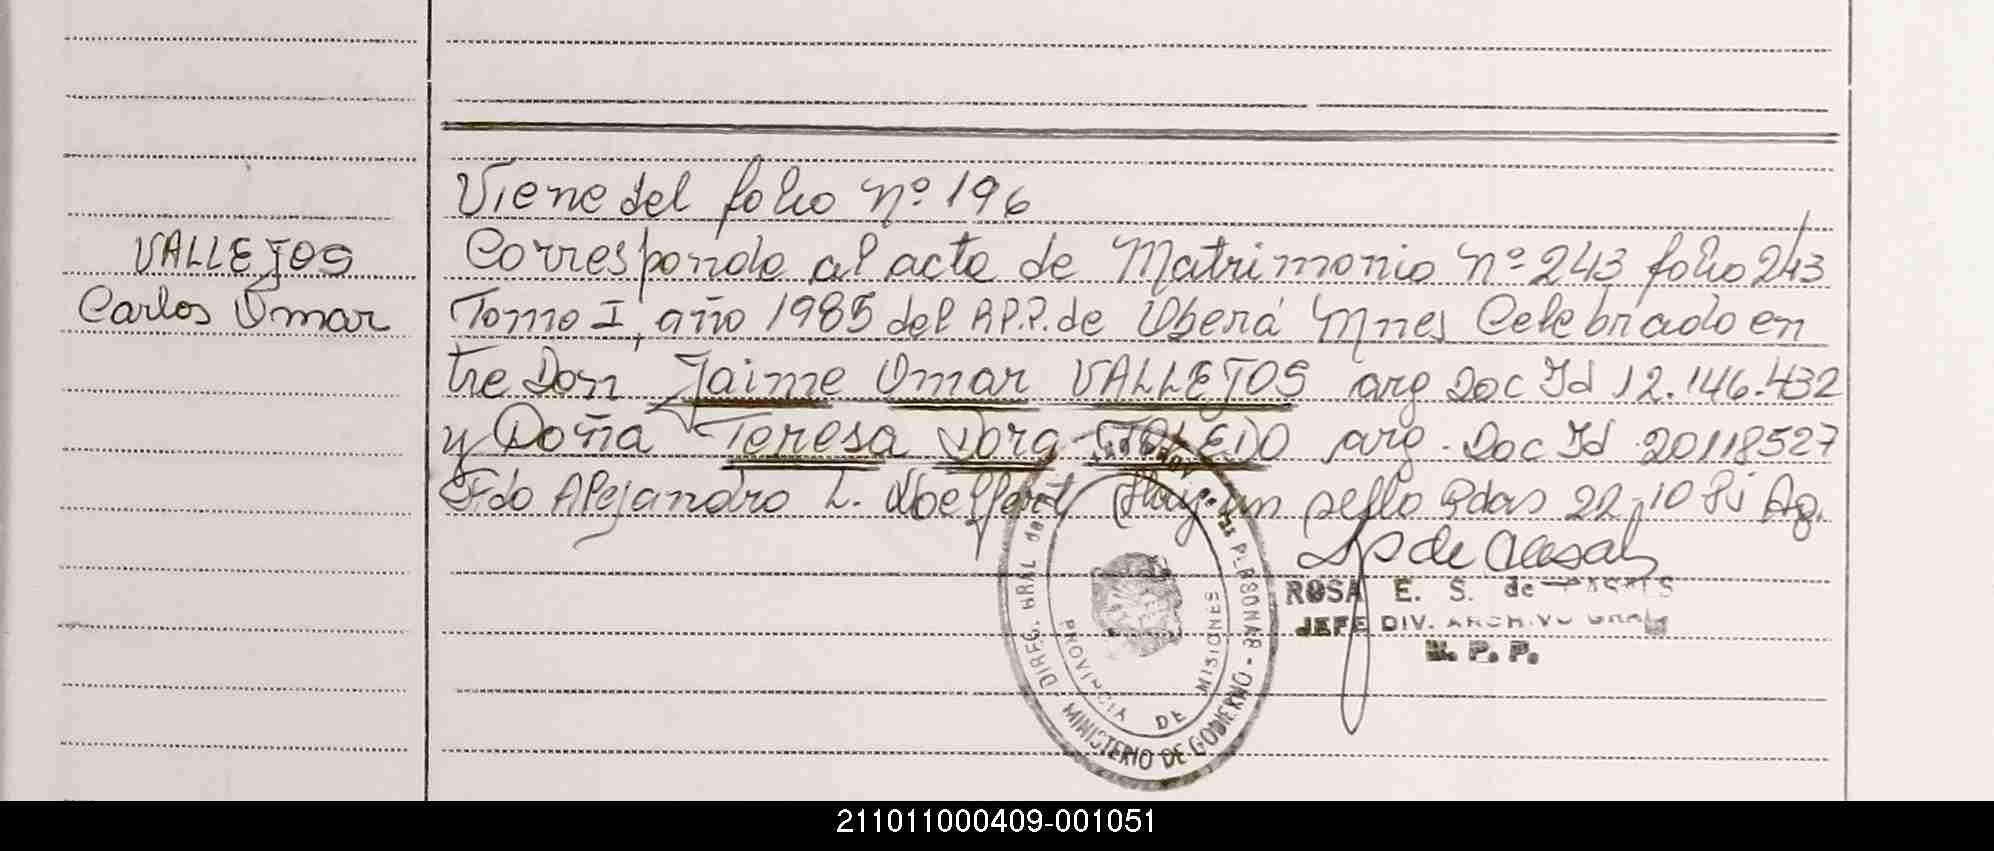 Viene del folio nº 196
VALLEJOS
Carlos Omar
Corresponde al acta de Matrimonio nº 243 folio 243
Tomo I, año 1985 del R.P.P. de Oberá Mnes Celebrado en
tre Don Jaime Omar VALLEJOS arg Doc Id 12.146.432
y Doña Teresa Dora TOLEDO arg. Doc Id 20118527
Fdo Alejandro L. Hay un sello Pdas 22-10
ROSA E. S. de
JEFE DIV. ARCHIVO GRAL
R. P. P.
DIREC. GRAL DEL PERSONAS - MINISTERIO DE GOBIERNO -
PROVINCIA DE MISIONES
211011000409-001051